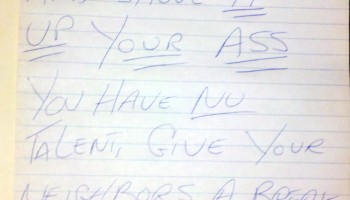 AND SHOVE IT
UP YOUR ASS
YOU HAVE NO
TALENT, GIVE YOUR
NEIGHBORS A BREAK